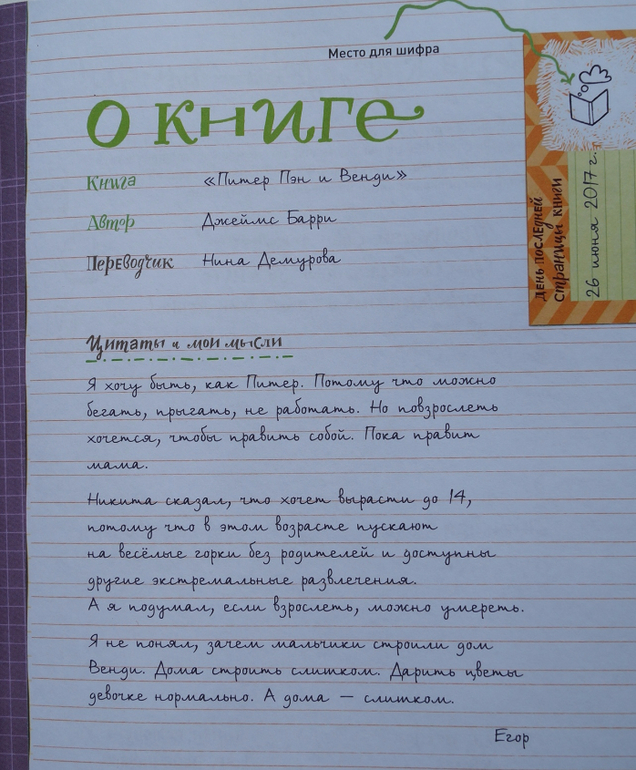 Место для шифра
О КНИГЕ
Книга «Питер Пэн и Венди»
Автор Джеймс Барри
Переводчик Нина Демурова
День последней
страницы книги
26 июня 2017 г.
Цитаты и мои мысли
Я хочу быть, как Питер. Потому что можно
бегать, прыгать, не работать. Но повзрослеть
хочется, чтобы править собой. Пока правит
мама.
Никита сказал, что хочет вырасти до 14,
потому что в этом возрасте пускают
на весёлые горки без родителей и доступны
другие экстремальные развлечения.
А я подумал, если взрослеть, можно умереть.
Я не понял, зачем мальчики строили дом
Венди. Дома строить слишком. Дарить цветы
девочке нормально. А дома — слишком.
Егор